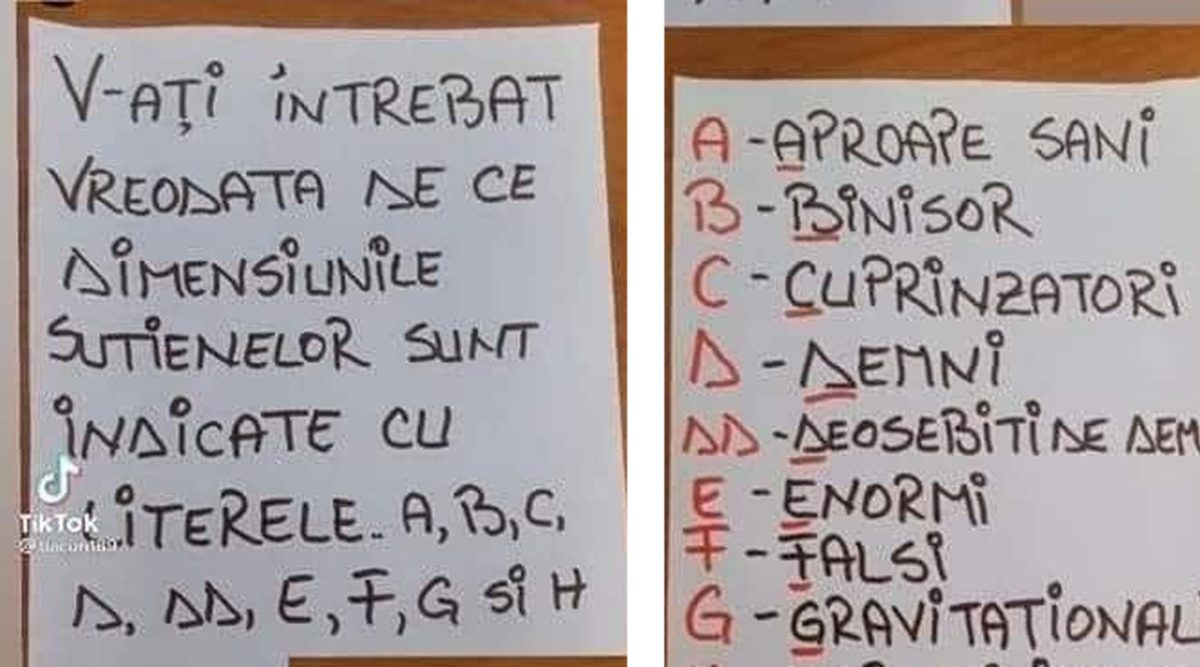 V-AȚI ÎNTREBAT
VREODATA DE CE
DIMENSIUNILE
SUTIENELOR SUNT
INDICATE CU
LITERELE. A, B, C,
D, DD, E, F, G SI H
TikTok
A - APROAPE SANI
B - BINISOR
C - CUPRINZATORI
D - DEMNI
DD - DEOSEBITI DE DEM
E - ENORMI
F - FALSI
G - GRAVITAȚIONAL